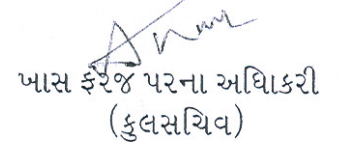 ખાસ ફરજ પરના અધિાકરી
(કુલસચિવ)